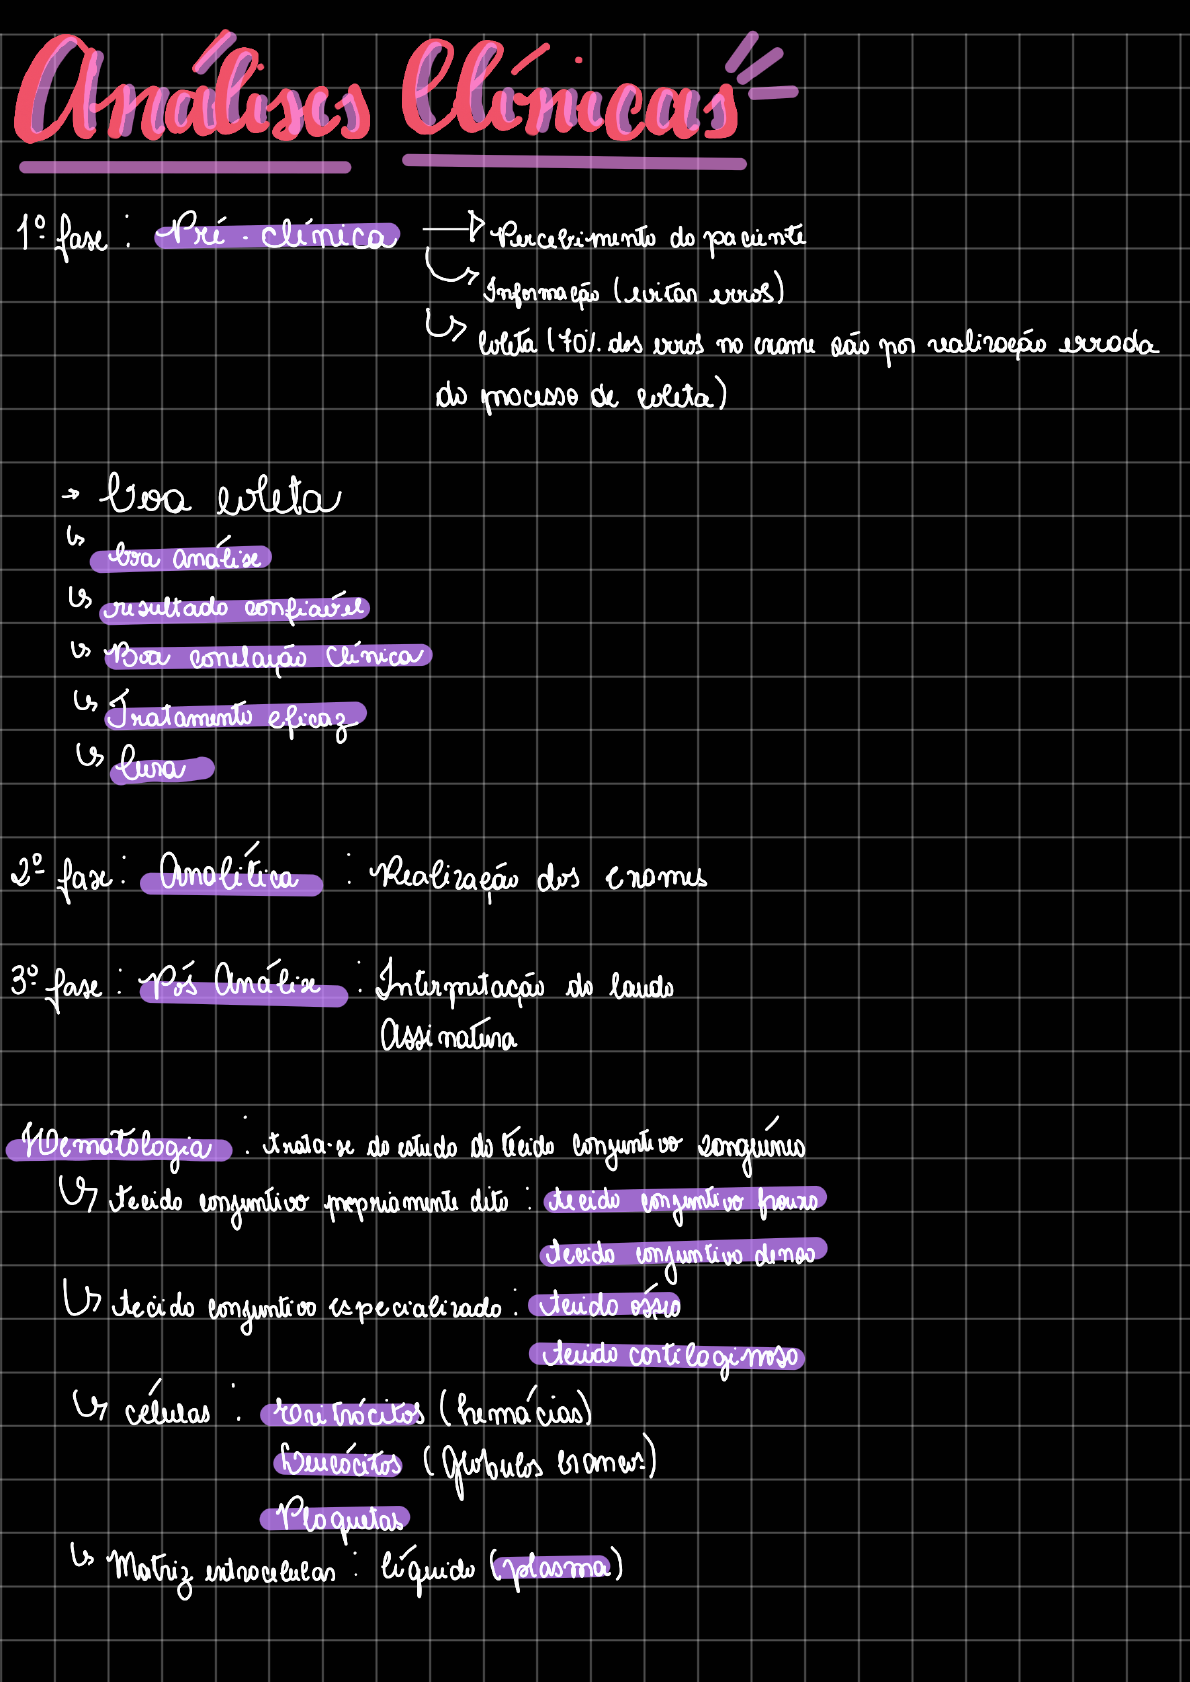 Análises Clínicas
1º fase : Pré - clínica → Percebimento do paciente
↳ Informação (evitar erros)
↳ Coleta (70% dos erros no exame são por realização errada
do processo de coleta)
→ Boa coleta
↳ boa análise
↳ resultado confiável
↳ Boa correlação Clínica
↳ Tratamento eficaz
↳ Cura
2º fase : Analítica : Realização dos exames
3º fase : Pós Análise : Interpretação do laudo
Assinatura
Hematologia : trata-se do estudo do tecido conjuntivo sanguíneo
↳ tecido conjuntivo propriamente dito : tecido conjuntivo frouxo
tecido conjuntivo denso
↳ tecido conjuntivo especializado : tecido ósseo
tecido cartilaginoso
↳ células : Eritrócitos (hemácias)
Leucócitos (Glóbulos brancos)
Plaquetas
↳ Matriz extracelular : líquido (plasma)